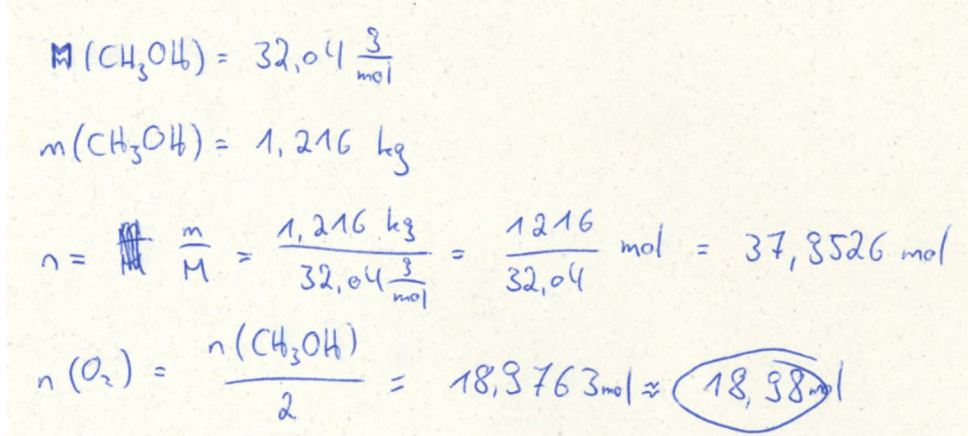 M(CH₃OH) = 32,04 g/mol
m(CH₃OH) = 1,216 kg
n = m/M = 1,216 kg / 32,04 g/mol = 1216/32,04 mol = 37,9526 mol
n(O₂) = n(CH₃OH)/2 = 18,9763 mol ≈ 18,98 mol